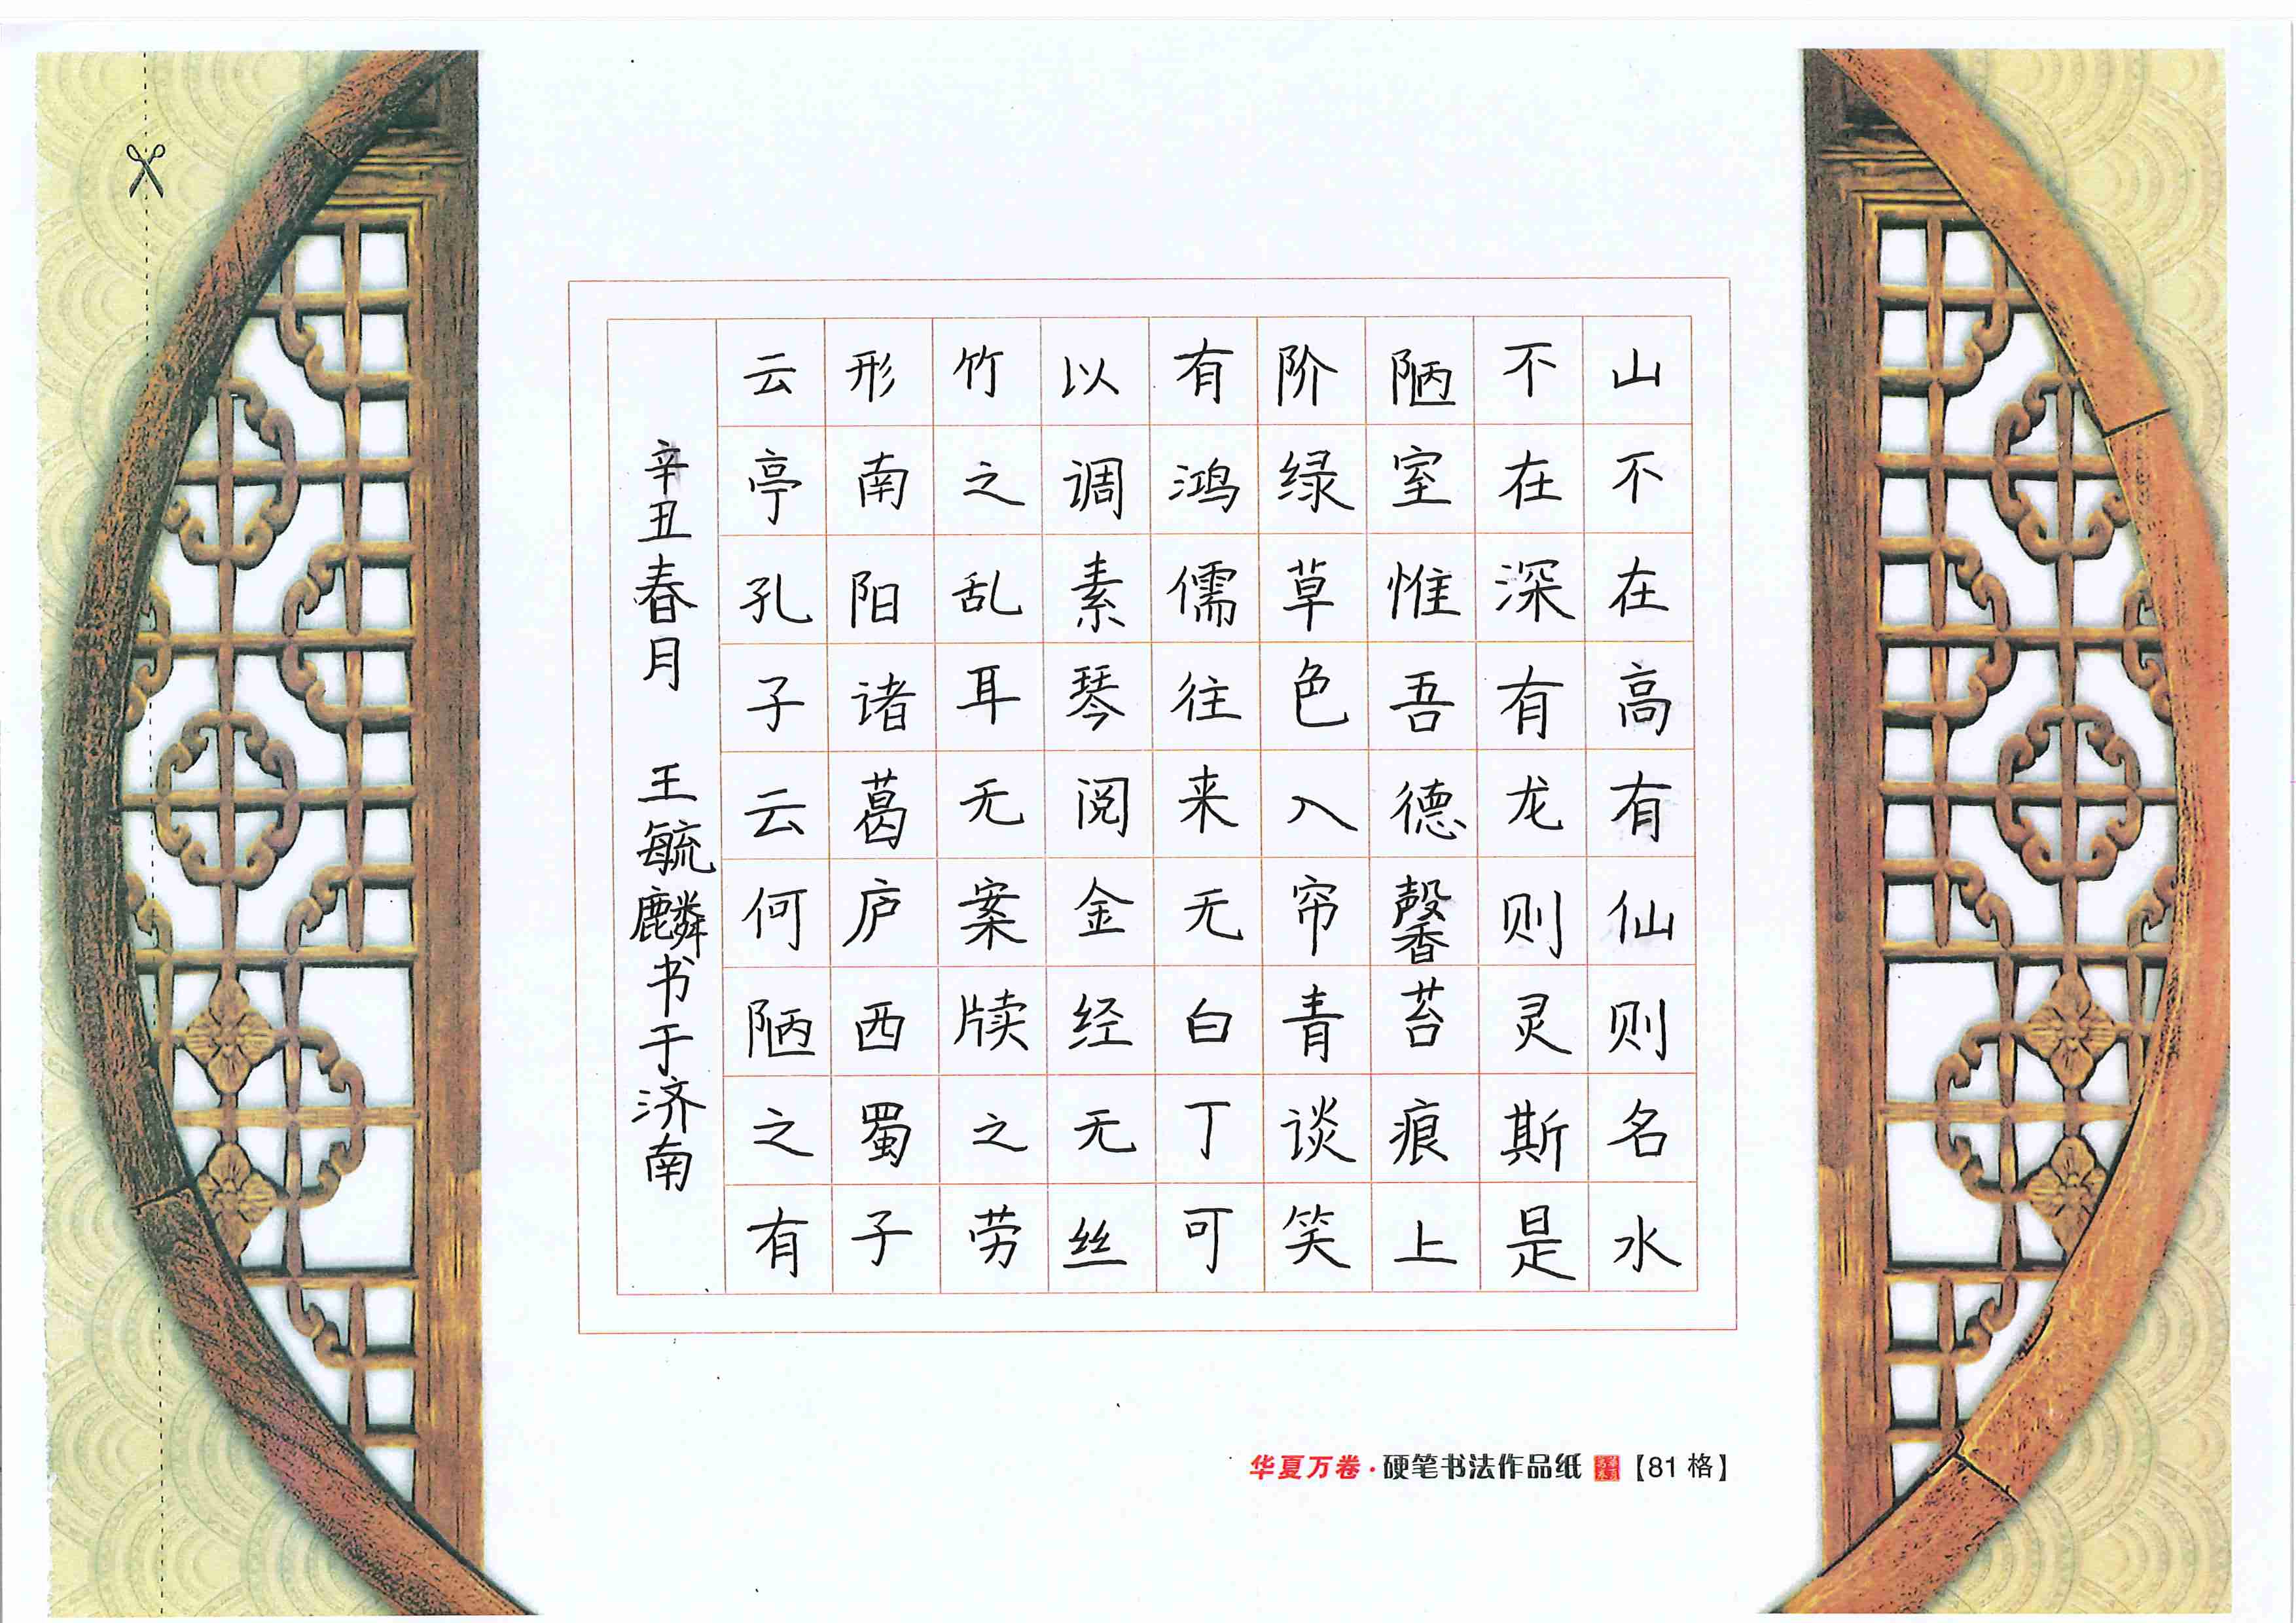 山不在高有仙则名水
不在深有龙则灵斯是
陋室惟吾德馨苔痕上
阶绿草色入帘青谈笑
有鸿儒往来无白丁可
以调素琴阅金经无丝
竹之乱耳无案牍之劳
形南阳诸葛庐西蜀子
云亭孔子云何陋之有
辛丑春月 王毓麟书于济南
华夏万卷·硬笔书法作品纸【81格】